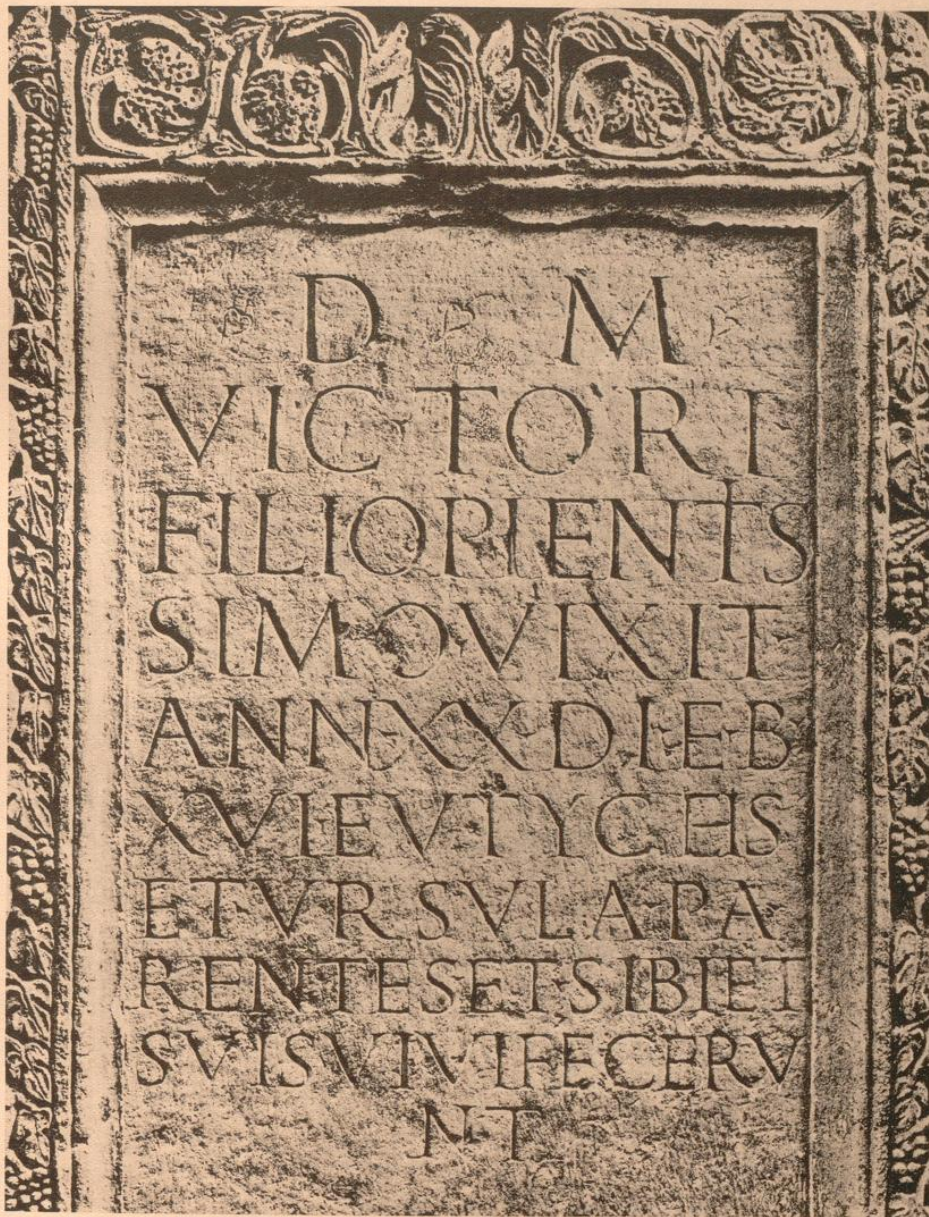 D M
VICTORI
FILIO PIENTIS
SIMO VIXIT
ANN XX DIEB
XVI EVTYCHIS
ET VRSVLA PA
RENTES ET SIBI ET
SVIS VIVI FECERV
NT